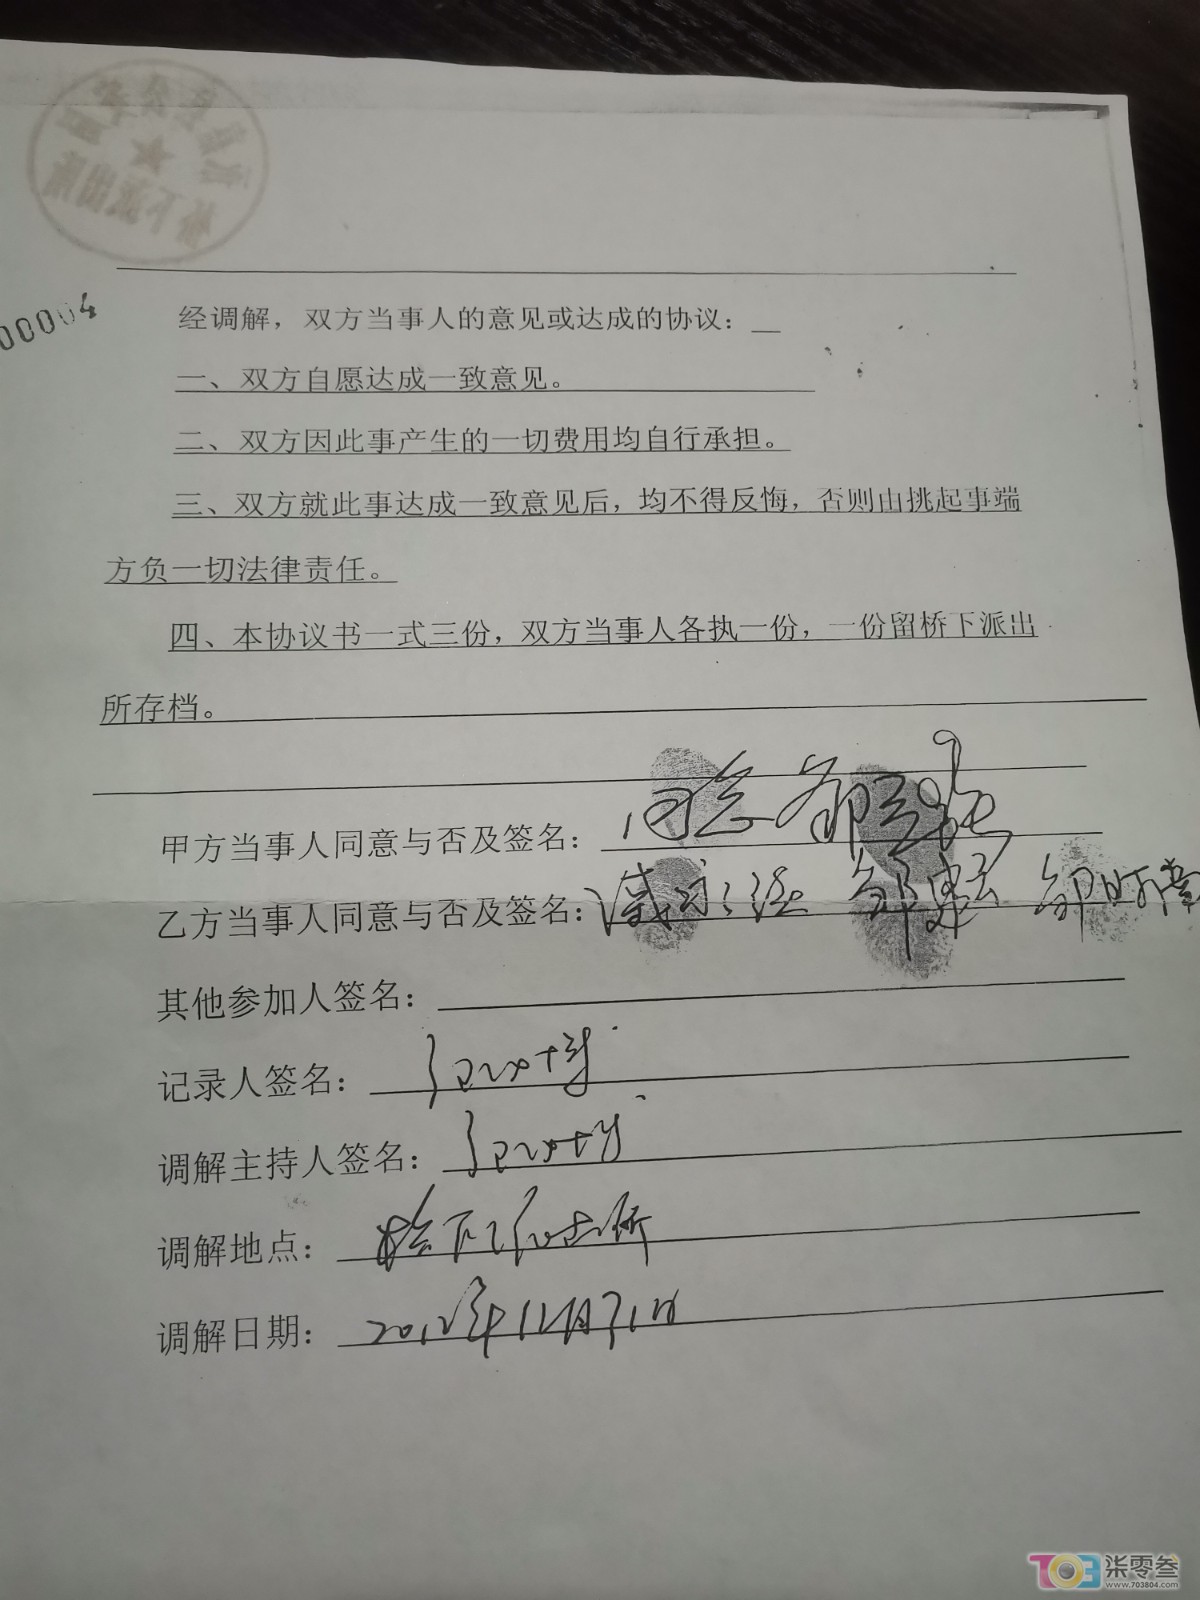 00004
经调解，双方当事人的意见或达成的协议：
一、双方自愿达成一致意见。
二、双方因此事产生的一切费用均自行承担。
三、双方就此事达成一致意见后，均不得反悔，否则由挑起事端
方负一切法律责任。
四、本协议书一式三份，双方当事人各执一份，一份留桥下派出
所存档。
甲方当事人同意与否及签名：同意
乙方当事人同意与否及签名：
其他参加人签名：
记录人签名：
调解主持人签名：
调解地点：桥下派出所
调解日期：2012年12月31日
703 柒零叁
www.703804.com